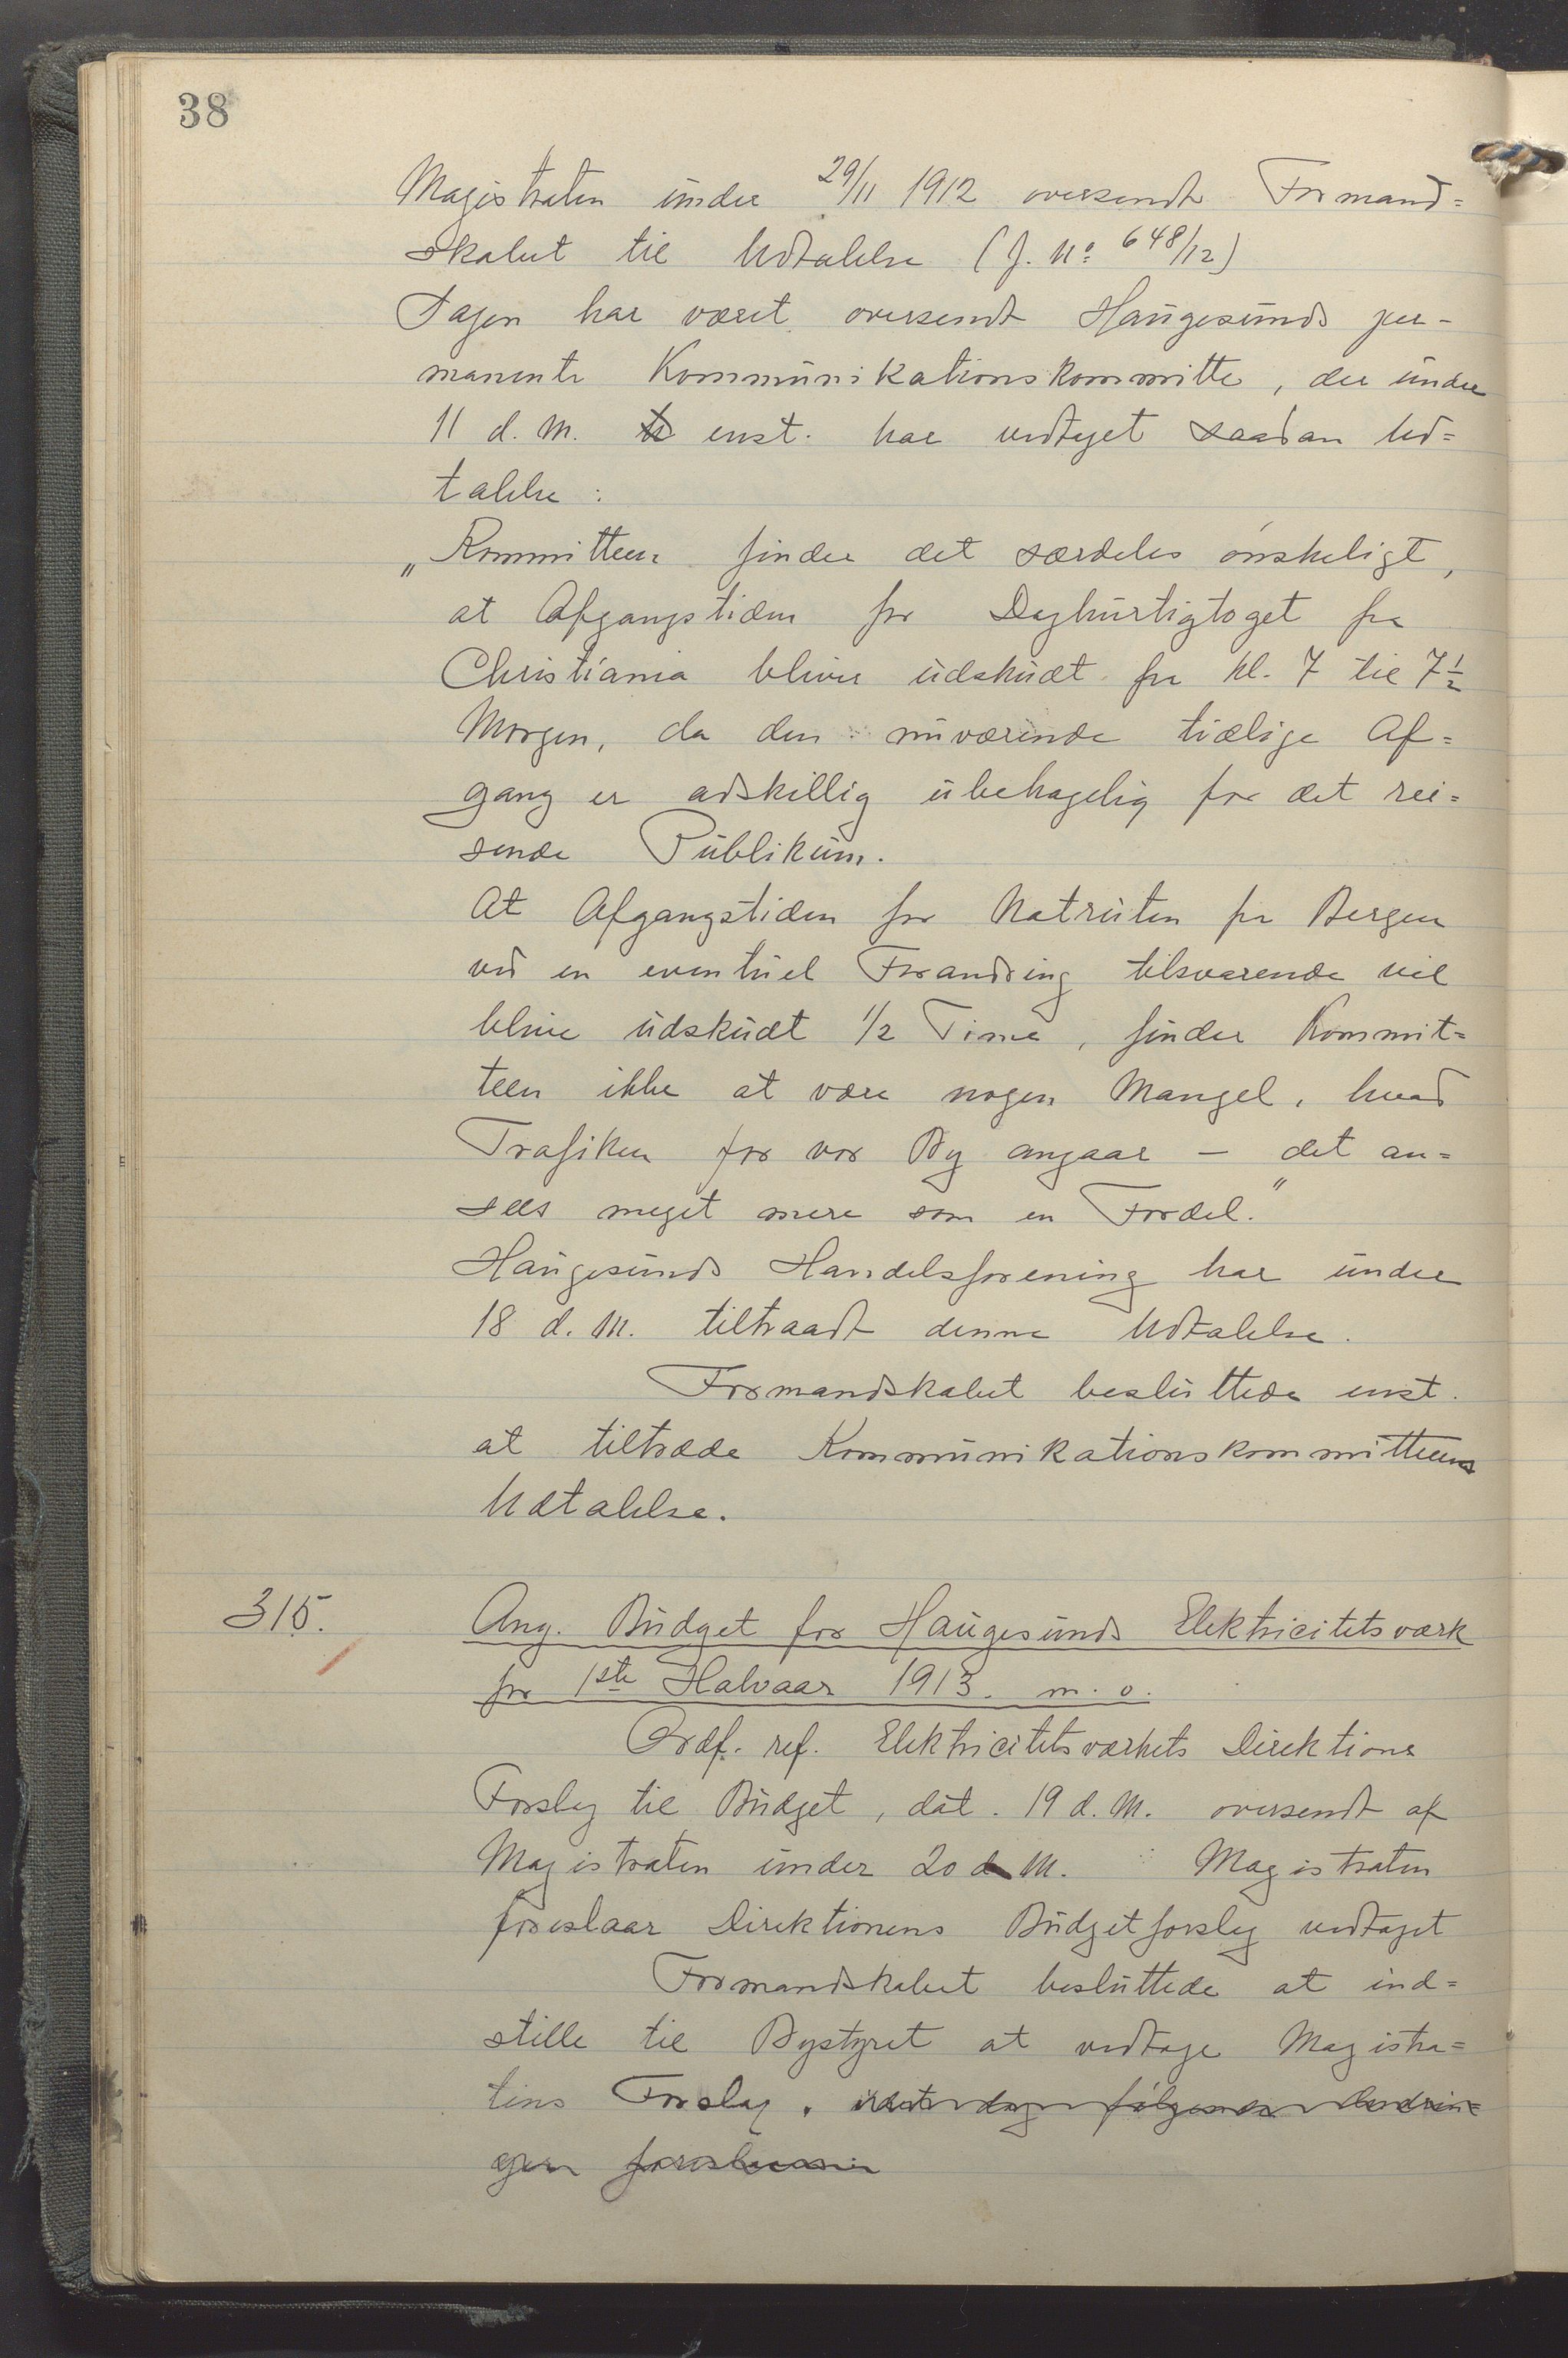 38
Magistraten under 29/11 1912 oversendt Formand=
skabet til Udtalelse (J. No 648/12)
Sagen har været oversendt Haugesunds per-
manente Kommunikationskommitte, der under
11 d. M. enst. har vedtaget saadan Ud=
talelse:
„Kommitteen finder det særdeles ønskeligt,
at Afgangstiden for Daghurtigtoget fra
Christiania bliver udskudt fra kl. 7 til 7 1/2
Morgen, da den nuværende tidlige Af=
gang er adskillig ubehagelig for det rei=
sende Publikum.
At Afgangstiden for Natruten fra Bergen
ved en eventuel Forandring tilsvarende vil
blive udskudt 1/2 Time, finder Kommit=
teen ikke at være nogen Mangel, hvad
Trafiken for vor By angaar – det an=
sees meget mere som en Fordel."
Haugesunds Handelsforening har under
18 d. M. tiltraadt denne Udtalelse.
Formandskabet besluttede enst.
at tiltræde Kommunikationskommitteens
Udtalelse.
315.
Ang. Budget for Haugesunds Elektricitetsværk
for 1ste Halvaar 1913. m. v.
Ordf. ref. Elektricitetsværkets Direktions
Forslag til Budget, dat. 19 d. M. oversendt af
Magistraten under 20 d. M. Magistraten
foreslaar Direktionens Budgetforslag vedtaget
Formandskabet besluttede at ind=
stille til Bystyret at vedtage Magistra=
tens Forslag. idet dog følgende Ændrin=
ger